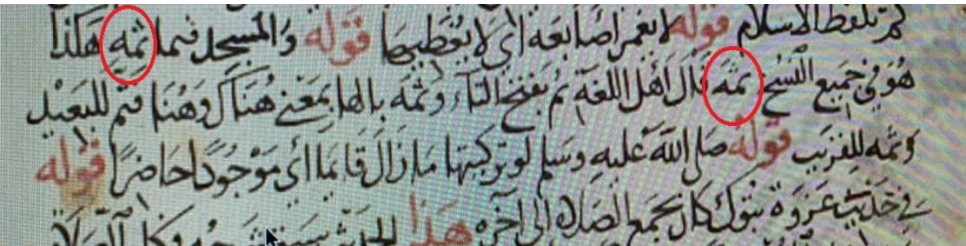 ثم تلفظ الاسلام قوله لا يغمر اصابعه اي لا يغطيها قوله والمسجد فيما ثمه هكذا
هو في جميع النسخ ثمه قال اهل اللغة ثم بفتح الثاء وثمه بالها بمعنى هناك وهنا فثم للبعيد
وثمه للقريب قوله صلى الله عليه وسلم لو تركتها ما زال قايما اي موجودا حاضرا قوله
في حديث غزوة تبوك كان يجمع الصلاة الى آخره هذا الحديث سبق